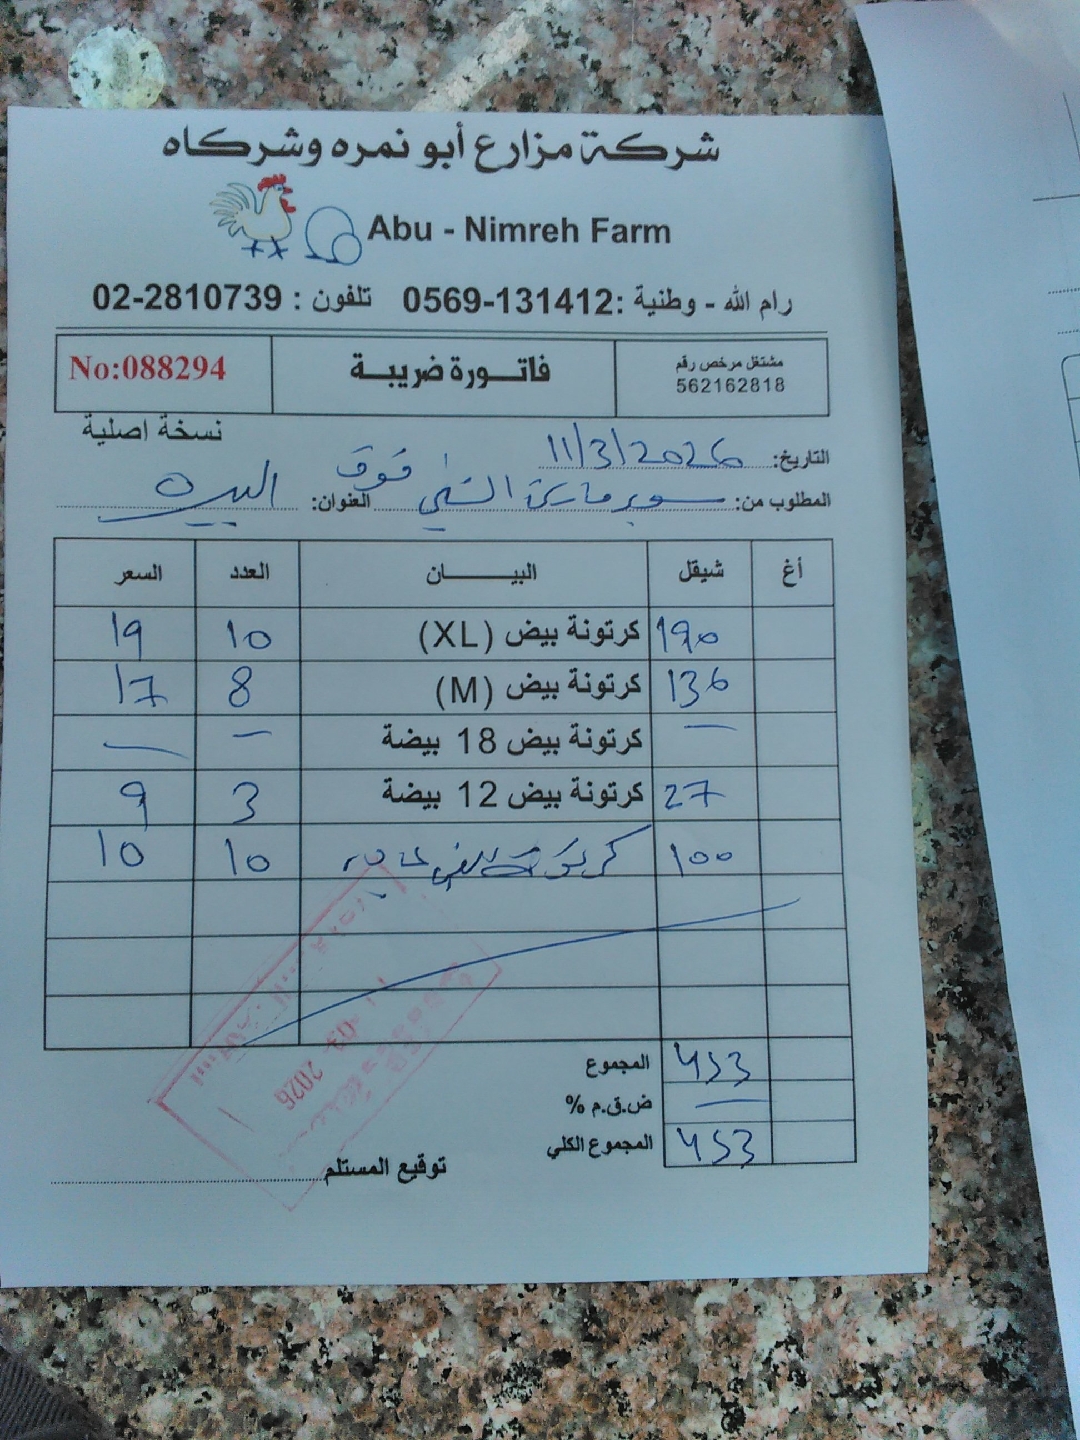 شركة مزارع أبو نمره وشركاه
Abu - Nimreh Farm
رام الله - وطنية :0569-131412 تلفون : 02-2810739
مشتغل مرخص رقم 562162818
فاتـــورة ضريبـــة
No:088294
نسخة اصلية
التاريخ: 11/3/2026
المطلوب من: سوبر ماركت فوق العنوان: البيره
أغ شيقل البيـــــــان العدد السعر
190 كرتونة بيض (XL) 10 19
136 كرتونة بيض (M) 8 17
— كرتونة بيض 18 بيضة — —
27 كرتونة بيض 12 بيضة 3 9
100 كرتونة 10 10
المجموع 453
ض.ق.م % —
المجموع الكلي 453
توقيع المستلم
03 2026